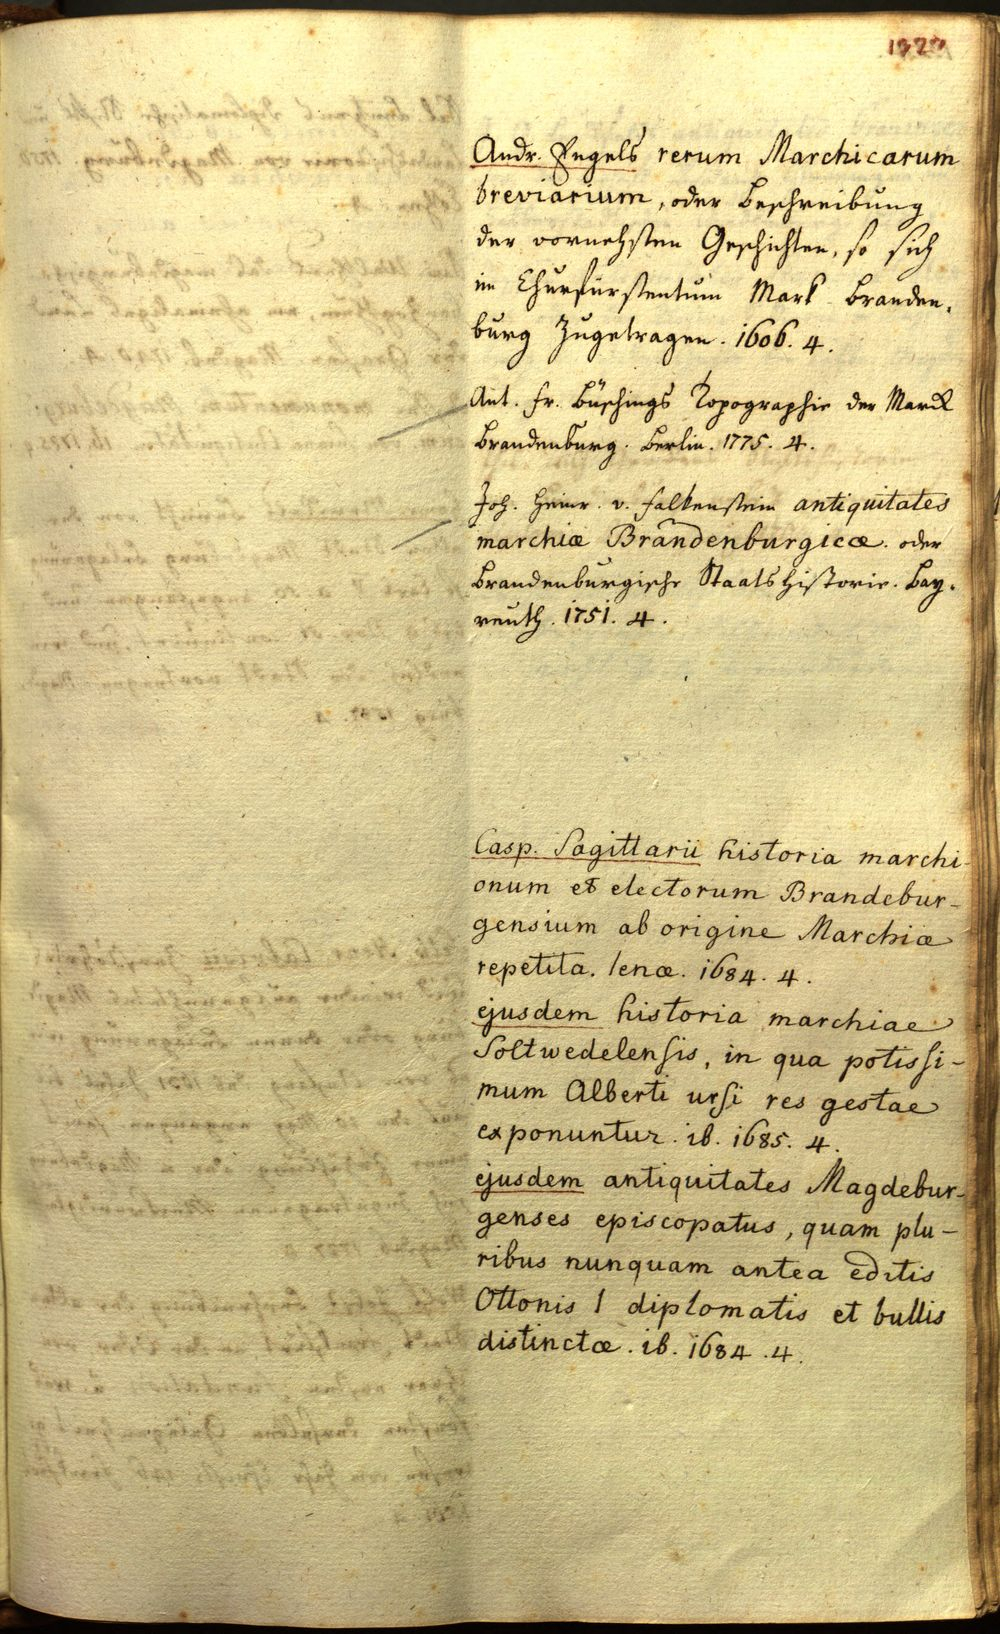 Andr. Engels rerum Marchicarum
breviarium, oder Beschreibung
der vornehsten Geschichten, so sich
im Churfürstentum Mark Branden,
burg Zugetragen. 1606. 4.
Ant. Fr. Büschings Topographie der Marck
Brandenburg. Berlin. 1775. 4.
Joh. Heinr. v. Falkenstein antiquitates
marchiæ Brandenburgicæ. oder
Brandenburgische Staats Historie. Bay,
reuth. 1751. 4.
Casp. Sagittarii historia marchi-
onum et electorum Brandebur-
gensium ab origine Marchiæ
repetita. Ienæ. 1684. 4.
ejusdem historia marchiae
Soltwedelensis, in qua potissi-
mum Alberti ursi res gestae
exponuntur. ib. 1685. 4.
ejusdem antiquitates Magdebur-
genses episcopatus, quam plu-
ribus nunquam antea editis
Ottonis I diplomatis et bullis
distinctæ. ib. 1684. 4.